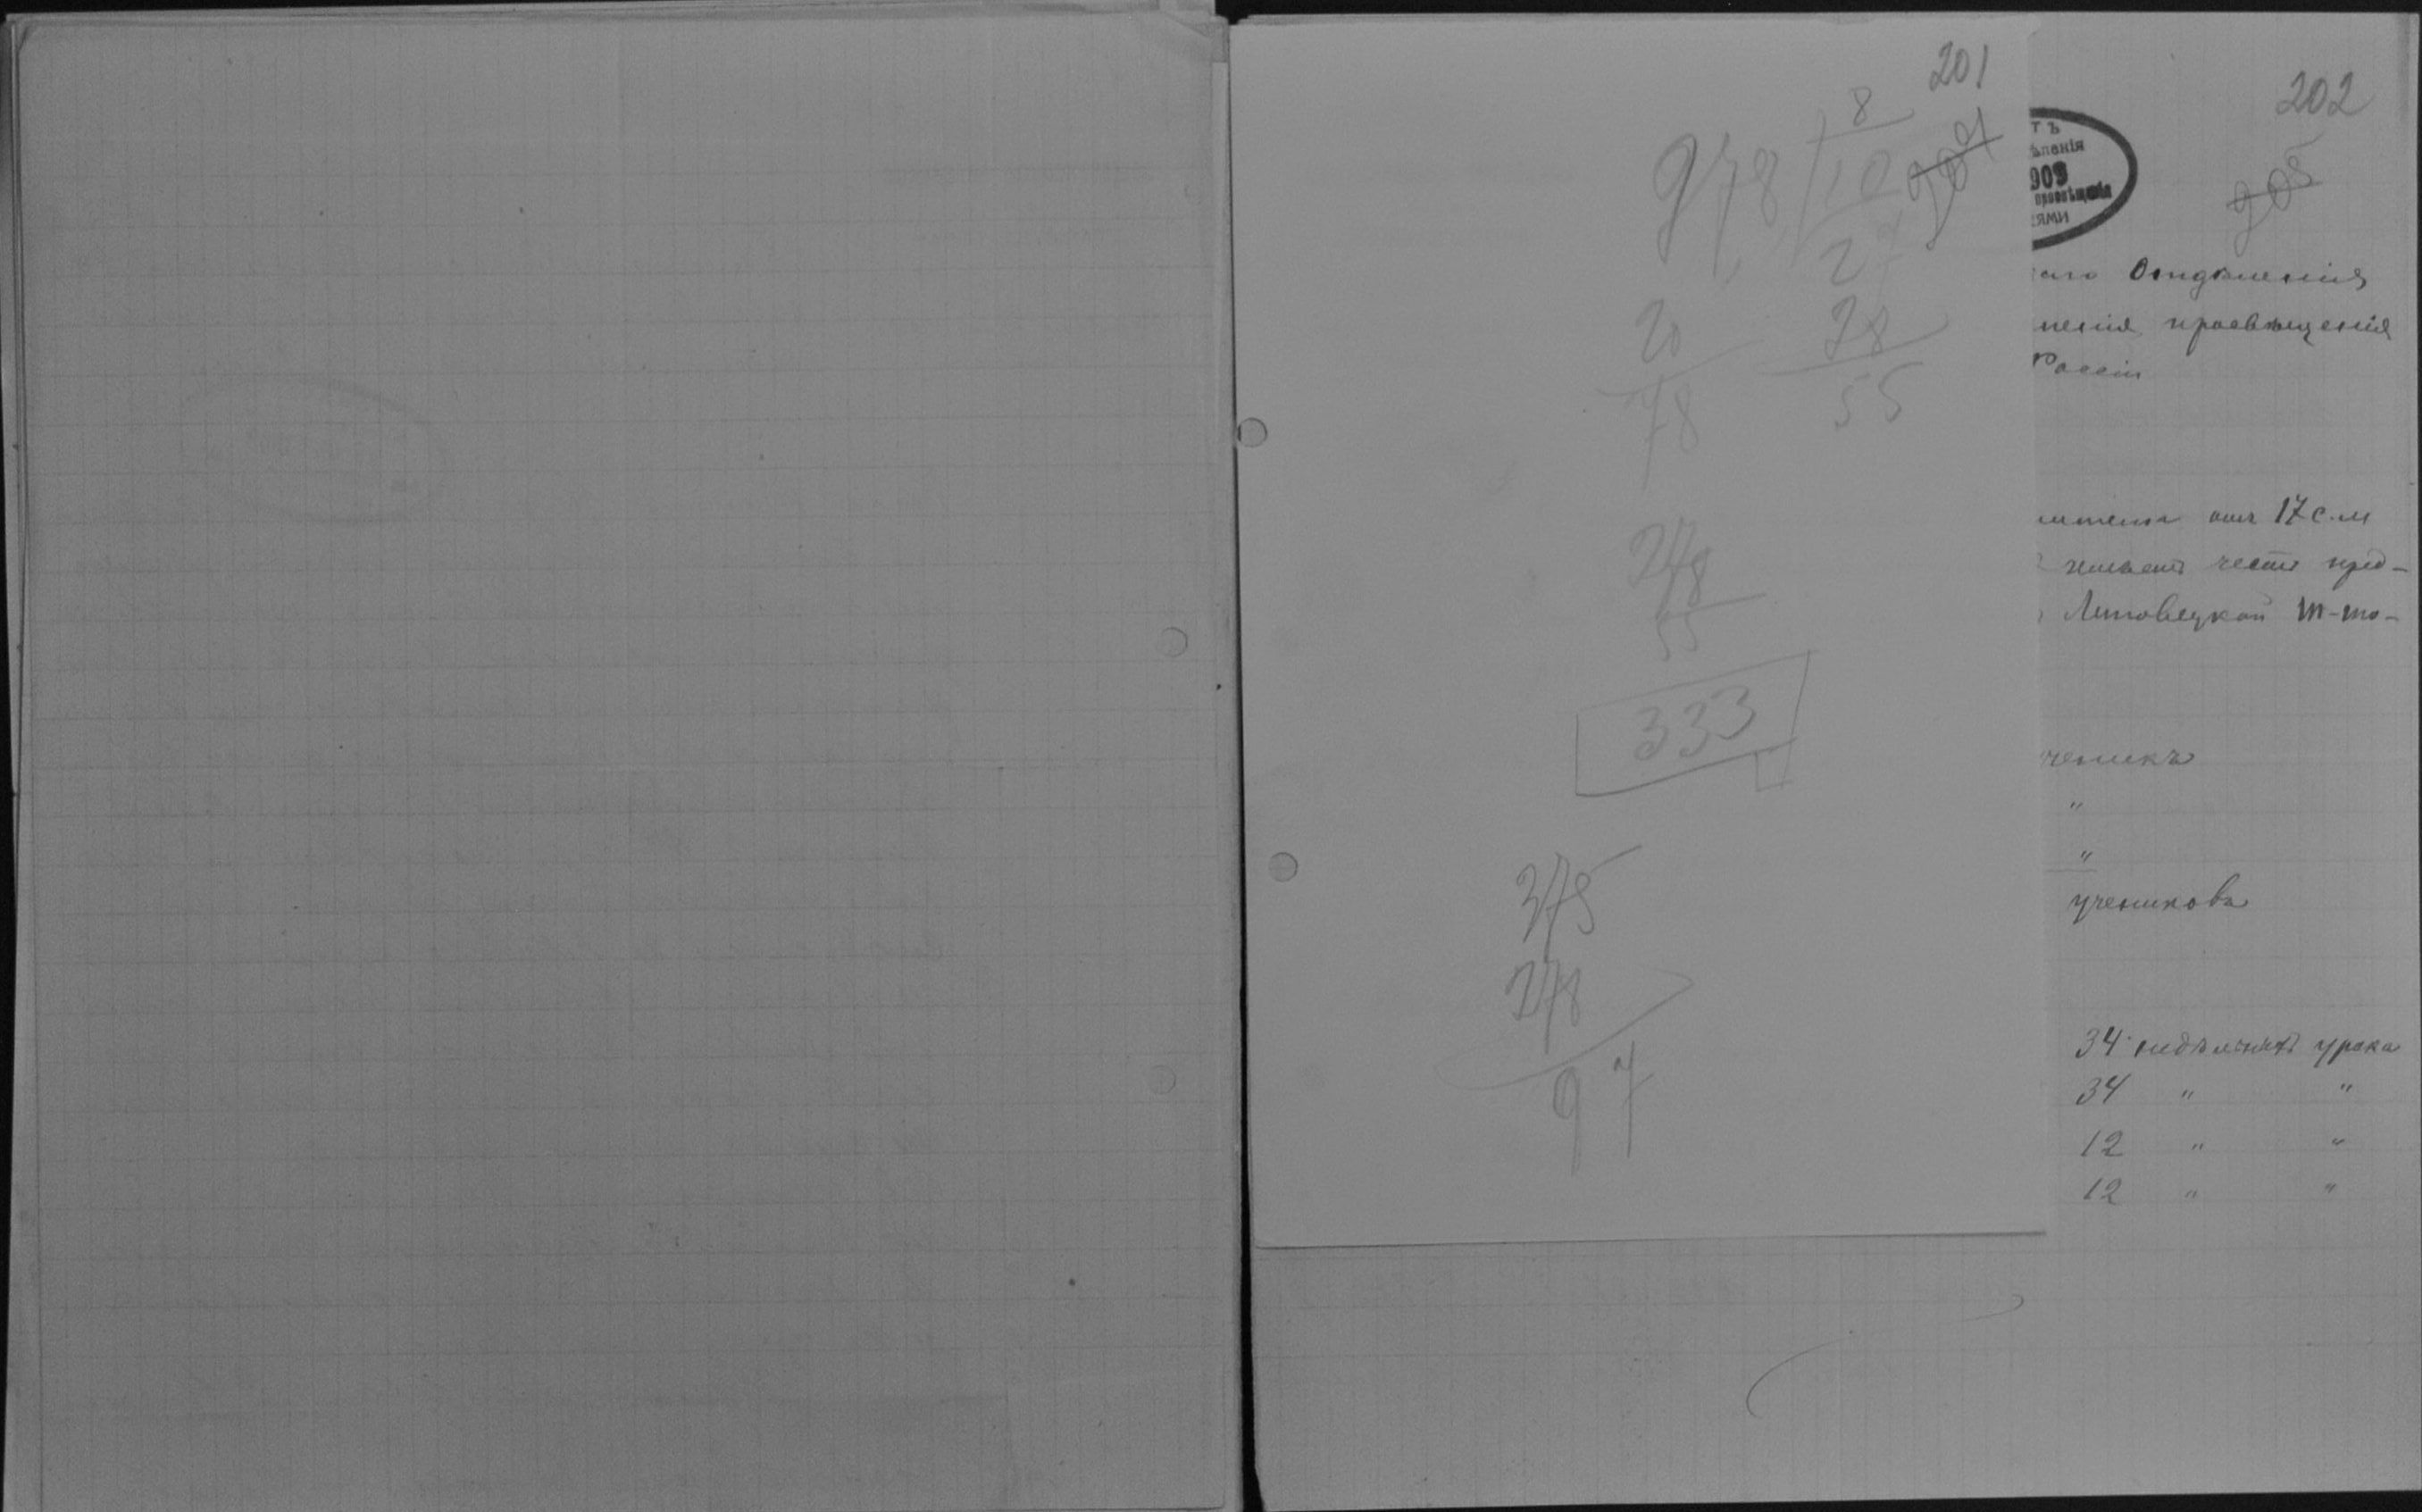 201
8
978 10
204
27
20 28
78 55
278
55
333
375
278
97
202
тъ
ѣленія
909
просвѣщенія
ями
205
Отдѣленія
ненія просвѣщенія
Россіи
отъ 17 с.м
имѣетъ честь пред-
Липовецкой т-то-
ченикъ
"
"
учениковъ
34 недѣльныхъ урока
34 " "
12 " "
12 " "